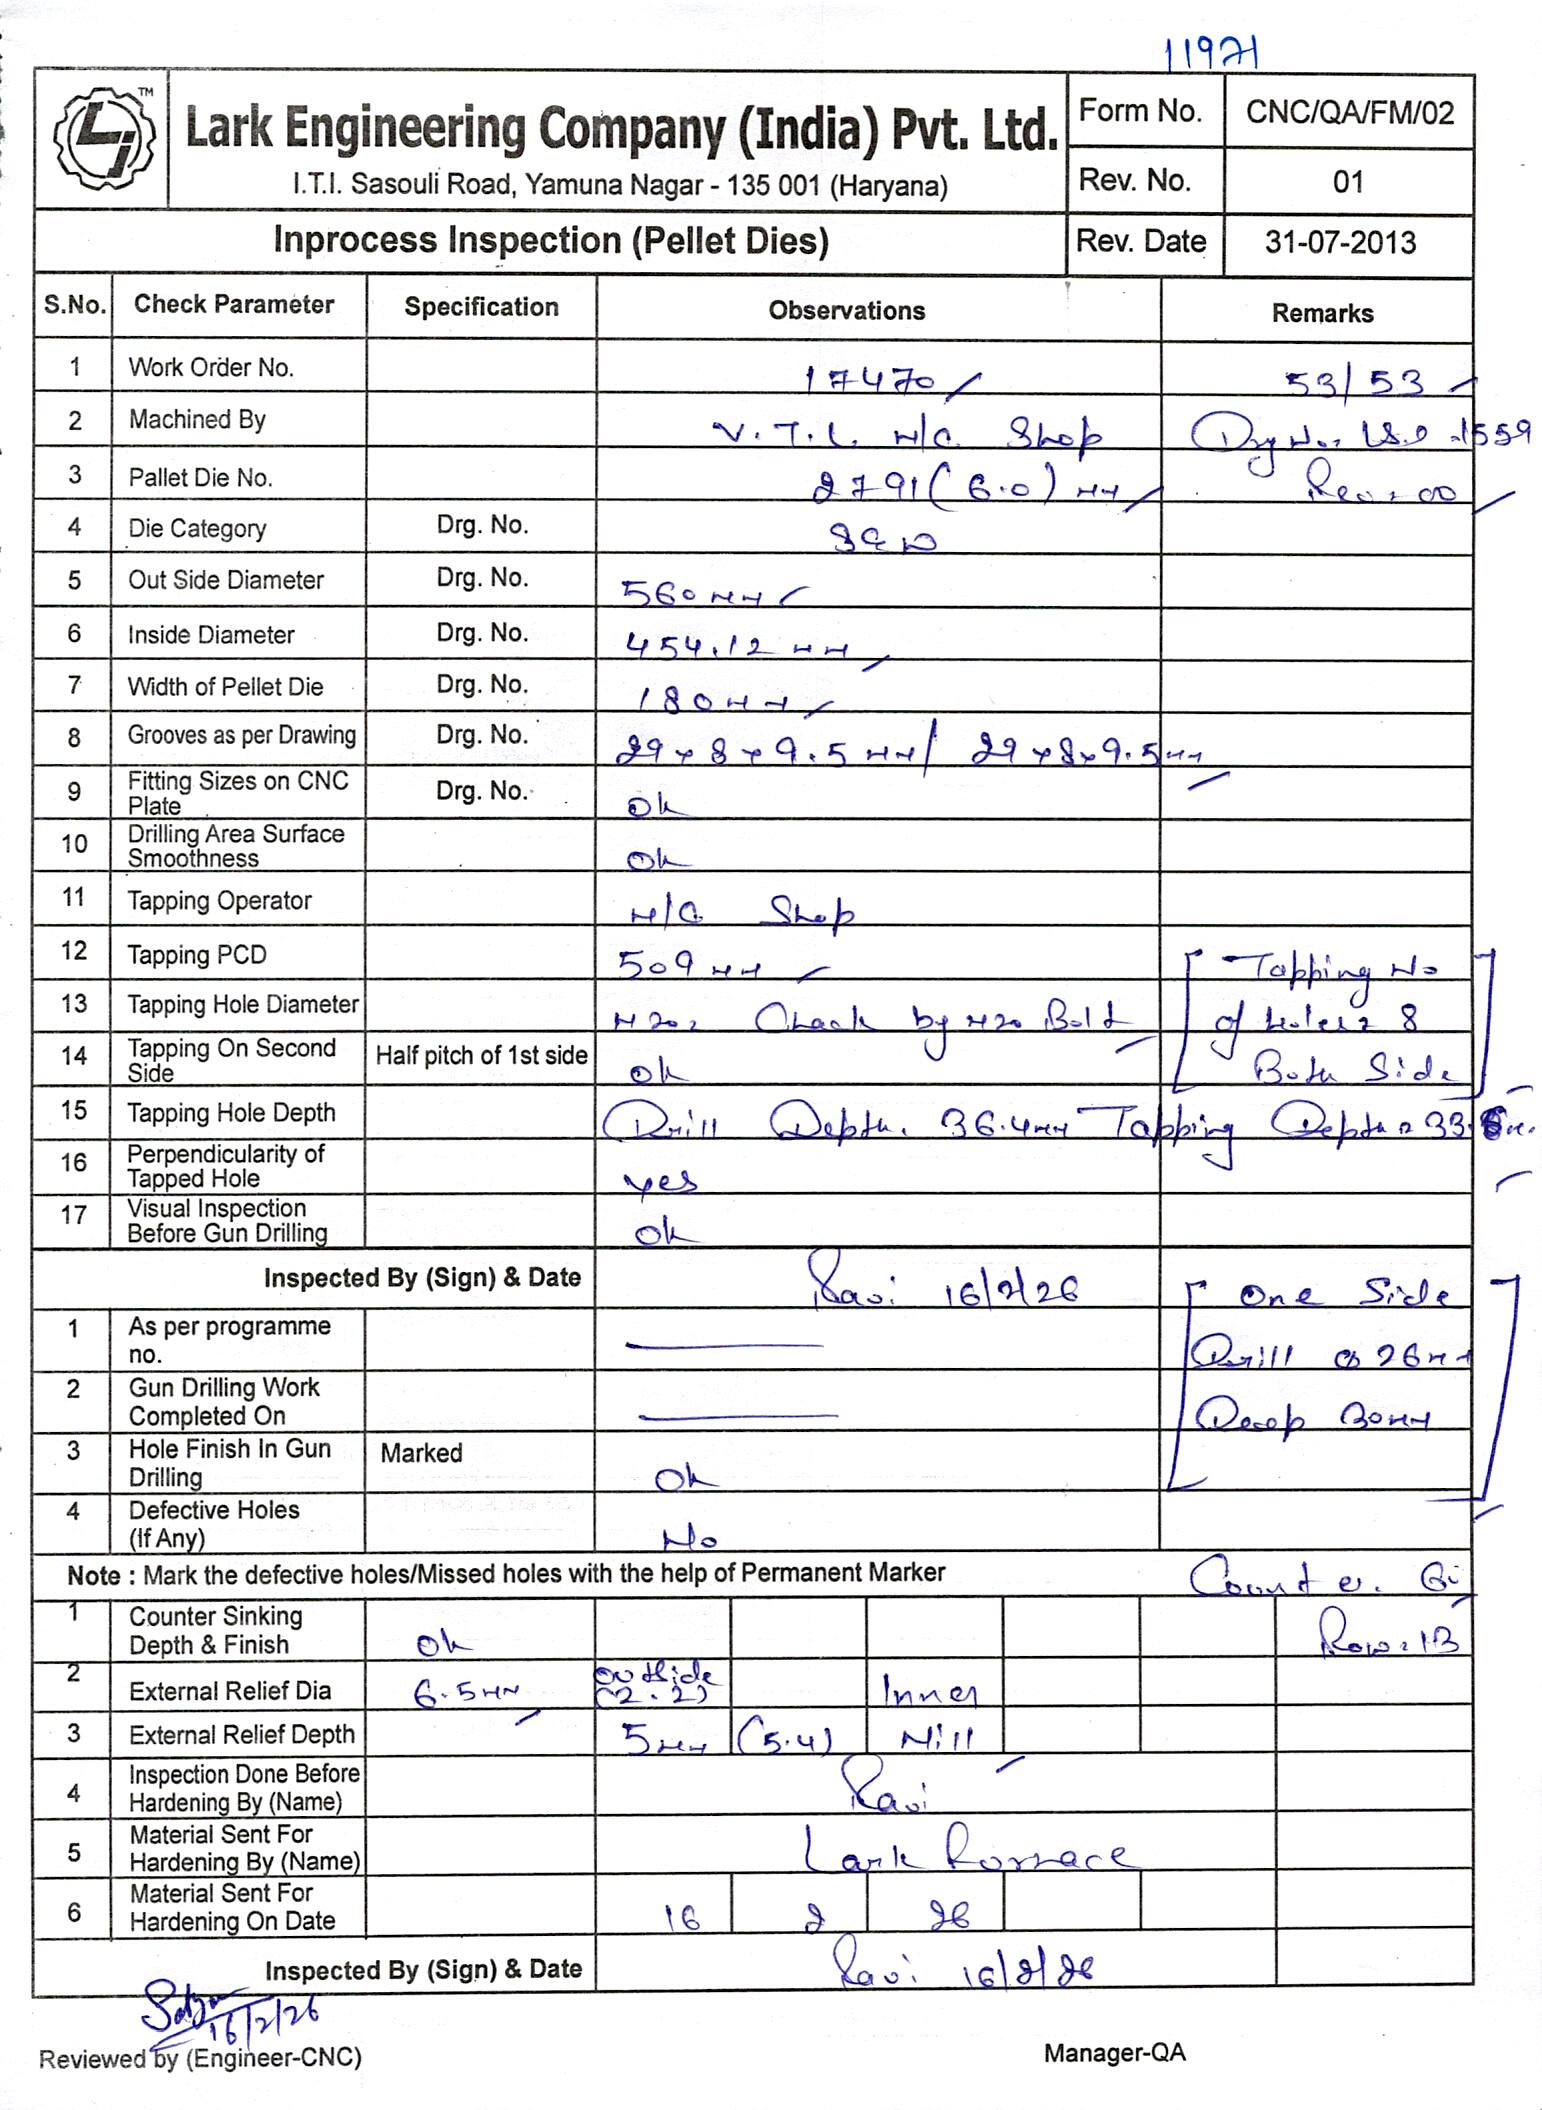 11971
TM
Lark Engineering Company (India) Pvt. Ltd.
I.T.I. Sasouli Road, Yamuna Nagar - 135 001 (Haryana)
Form No. CNC/QA/FM/02
Rev. No. 01
Inprocess Inspection (Pellet Dies) Rev. Date 31-07-2013
S.No. Check Parameter Specification Observations Remarks
1 Work Order No. 17470 53/53
2 Machined By V.T.L. M/C Shop Drg No. -1559
3 Pallet Die No. 2791 (6.0) MM Rev = 00
4 Die Category Drg. No.
5 Out Side Diameter Drg. No. 560 MM
6 Inside Diameter Drg. No. 454.12 MM
7 Width of Pellet Die Drg. No. 180 MM
8 Grooves as per Drawing Drg. No. 29 x 8 x 9.5 MM / 29 x 8 x 9.5 MM
9 Fitting Sizes on CNC Plate Drg. No. Ok
10 Drilling Area Surface Smoothness Ok
11 Tapping Operator M/C Shop
12 Tapping PCD 509 MM Tapping No
13 Tapping Hole Diameter M20, Chack by M20 Bolt of holes = 8
14 Tapping On Second Side Half pitch of 1st side Ok Both Side
15 Tapping Hole Depth Drill Depth. 36.4 MM Tapping Depth = 33.
16 Perpendicularity of Tapped Hole yes
17 Visual Inspection Before Gun Drilling Ok
Inspected By (Sign) & Date Ravi 16/2/26 One Side
1 As per programme no. Drill 26 MM
2 Gun Drilling Work Completed On Deep 30 MM
3 Hole Finish In Gun Drilling Marked Ok
4 Defective Holes (If Any) No
Note : Mark the defective holes/Missed holes with the help of Permanent Marker
1 Counter Sinking Depth & Finish Ok Row = 13
2 External Relief Dia 6.5 MM Outside (2.2) Inner
3 External Relief Depth 5 MM (5.4) Nill
4 Inspection Done Before Hardening By (Name) Ravi
5 Material Sent For Hardening By (Name) Lark Fornace
6 Material Sent For Hardening On Date 16 2 26
Inspected By (Sign) & Date Ravi 16/2/26
16/2/26
Reviewed by (Engineer-CNC) Manager-QA